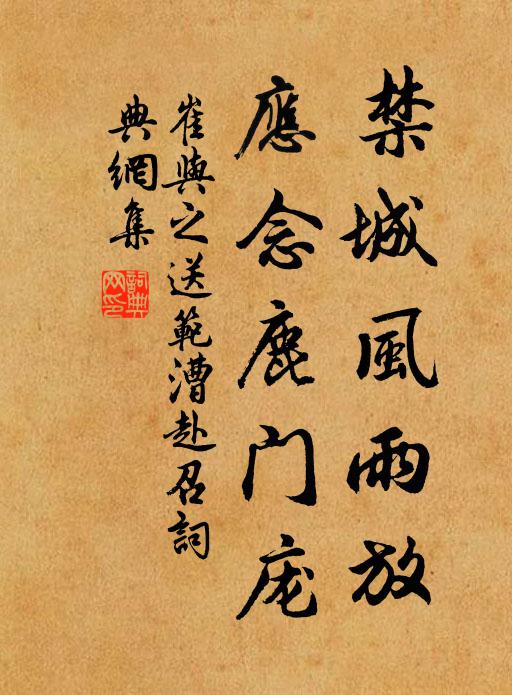 禁城風雨放
應念鹿门庞
崔與之送範漕赴召詞
典網集
詞典网印